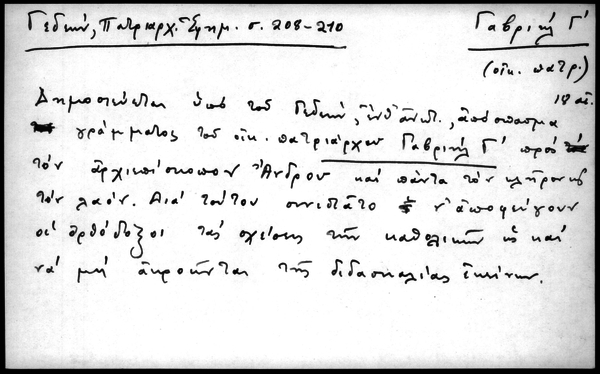 Γεδεών, Πατριαρχ. Ἐφημ. σ. 208-210
Γαβριήλ Γ'
(οἰκ. πατρ.)
18 αἰ.
Δημοσιεύεται ὑπό τοῦ Γεδεών, ἔνθ' ἀνωτ., ἀπόσπασμα
γράμματος τοῦ οἰκ. πατριάρχου Γαβριήλ Γ' πρός
τόν ἀρχιεπίσκοπον Ἄνδρου καί πάντα τόν κλῆρον κ
τόν λαόν. Διά τούτου συνιστᾶτο ν' ἀποφεύγουν
οἱ ὀρθόδοξοι τάς σχέσεις τῶν καθολικῶν ὡς καί
νά μή ἀκροῶνται τῆς διδασκαλίας ἐκείνων.